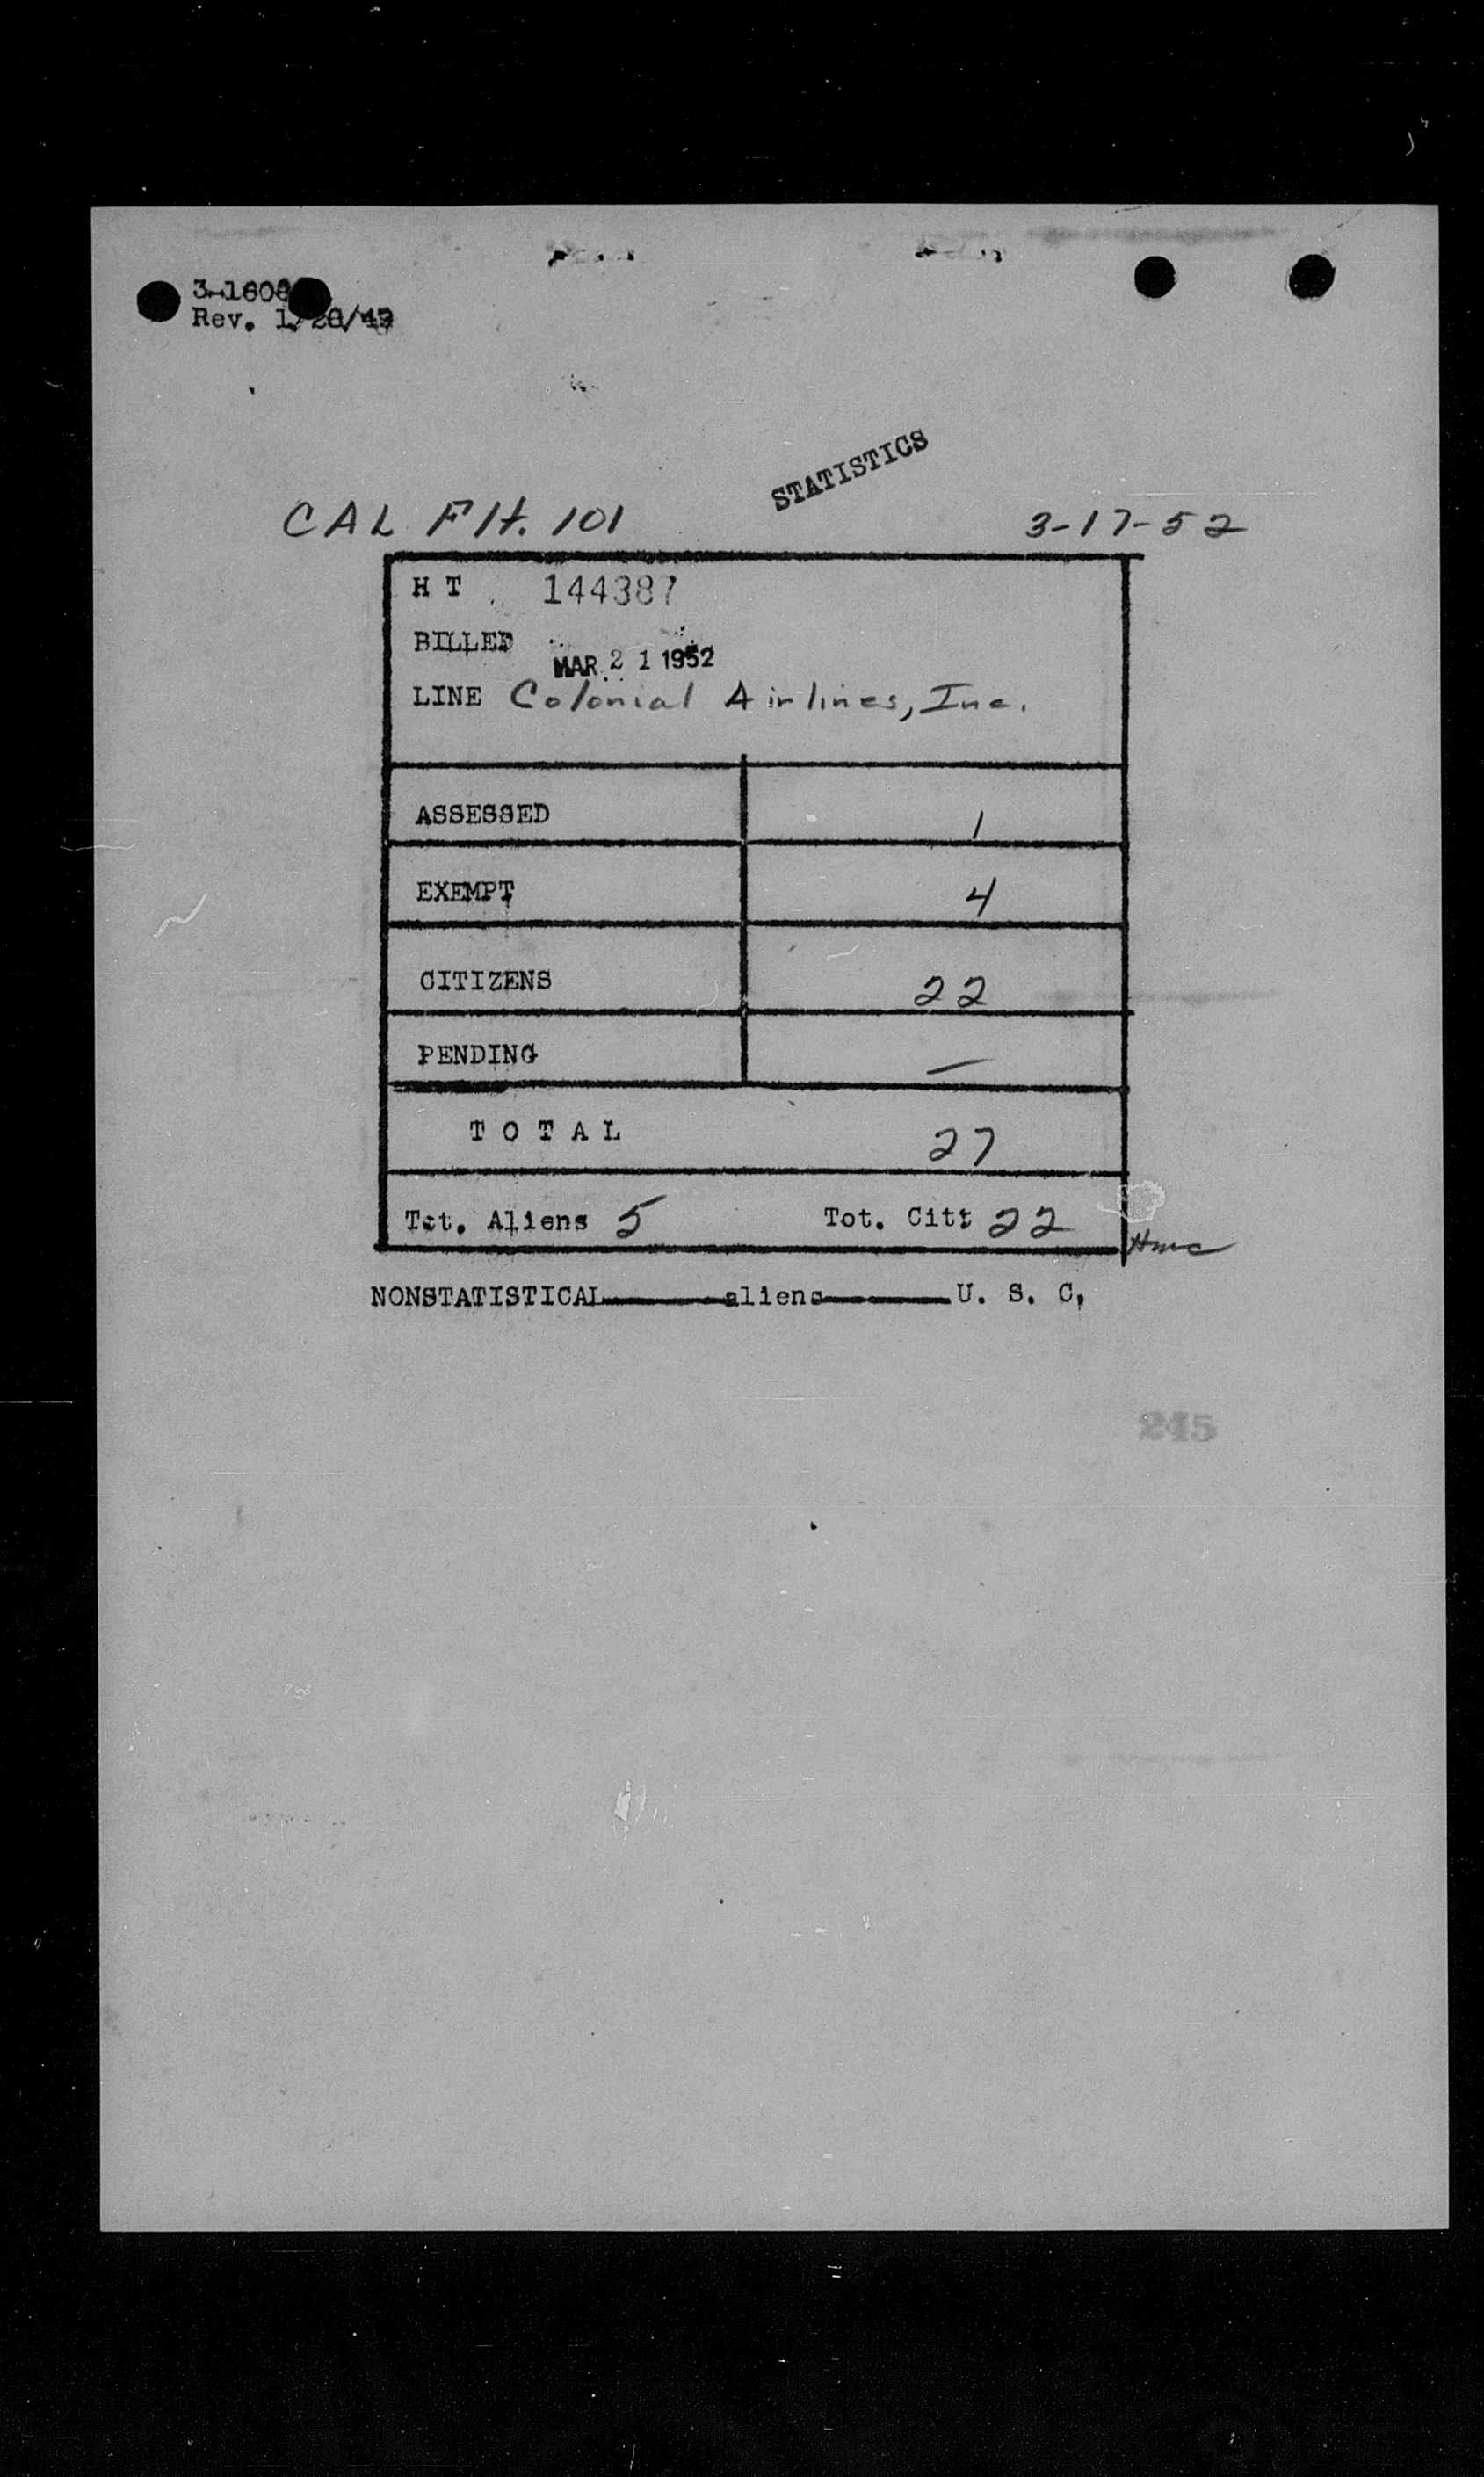 3-1606
Rev. 1/28/49
STATISTICS
CAL Flt. 101 3-17-52
H T 144387
BILLED MAR 21 1952
LINE Colonial Airlines, Inc.
ASSESSED 1
EXEMPT 4
CITIZENS 22
PENDING —
T O T A L 27
Tot. Aliens 5 Tot. Cit: 22
NONSTATISTICAL aliens U. S. C.
245